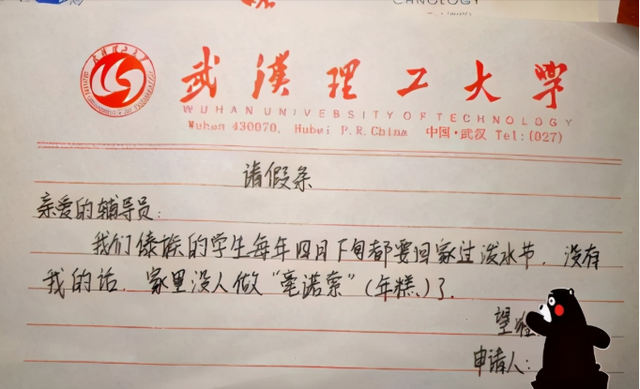 武漢理工大學
WUHAN UNIVERSITY OF TECHNOLOGY
Wuhan 430070, Hubei P.R.China 中国·武汉 Tel:(027)
请假条
亲爱的辅导员：
我们傣族的学生每年四月下旬都要回家过泼水节，没有
我的话，家里没人做“毫诺索”(年糕)了。
望
申请人：